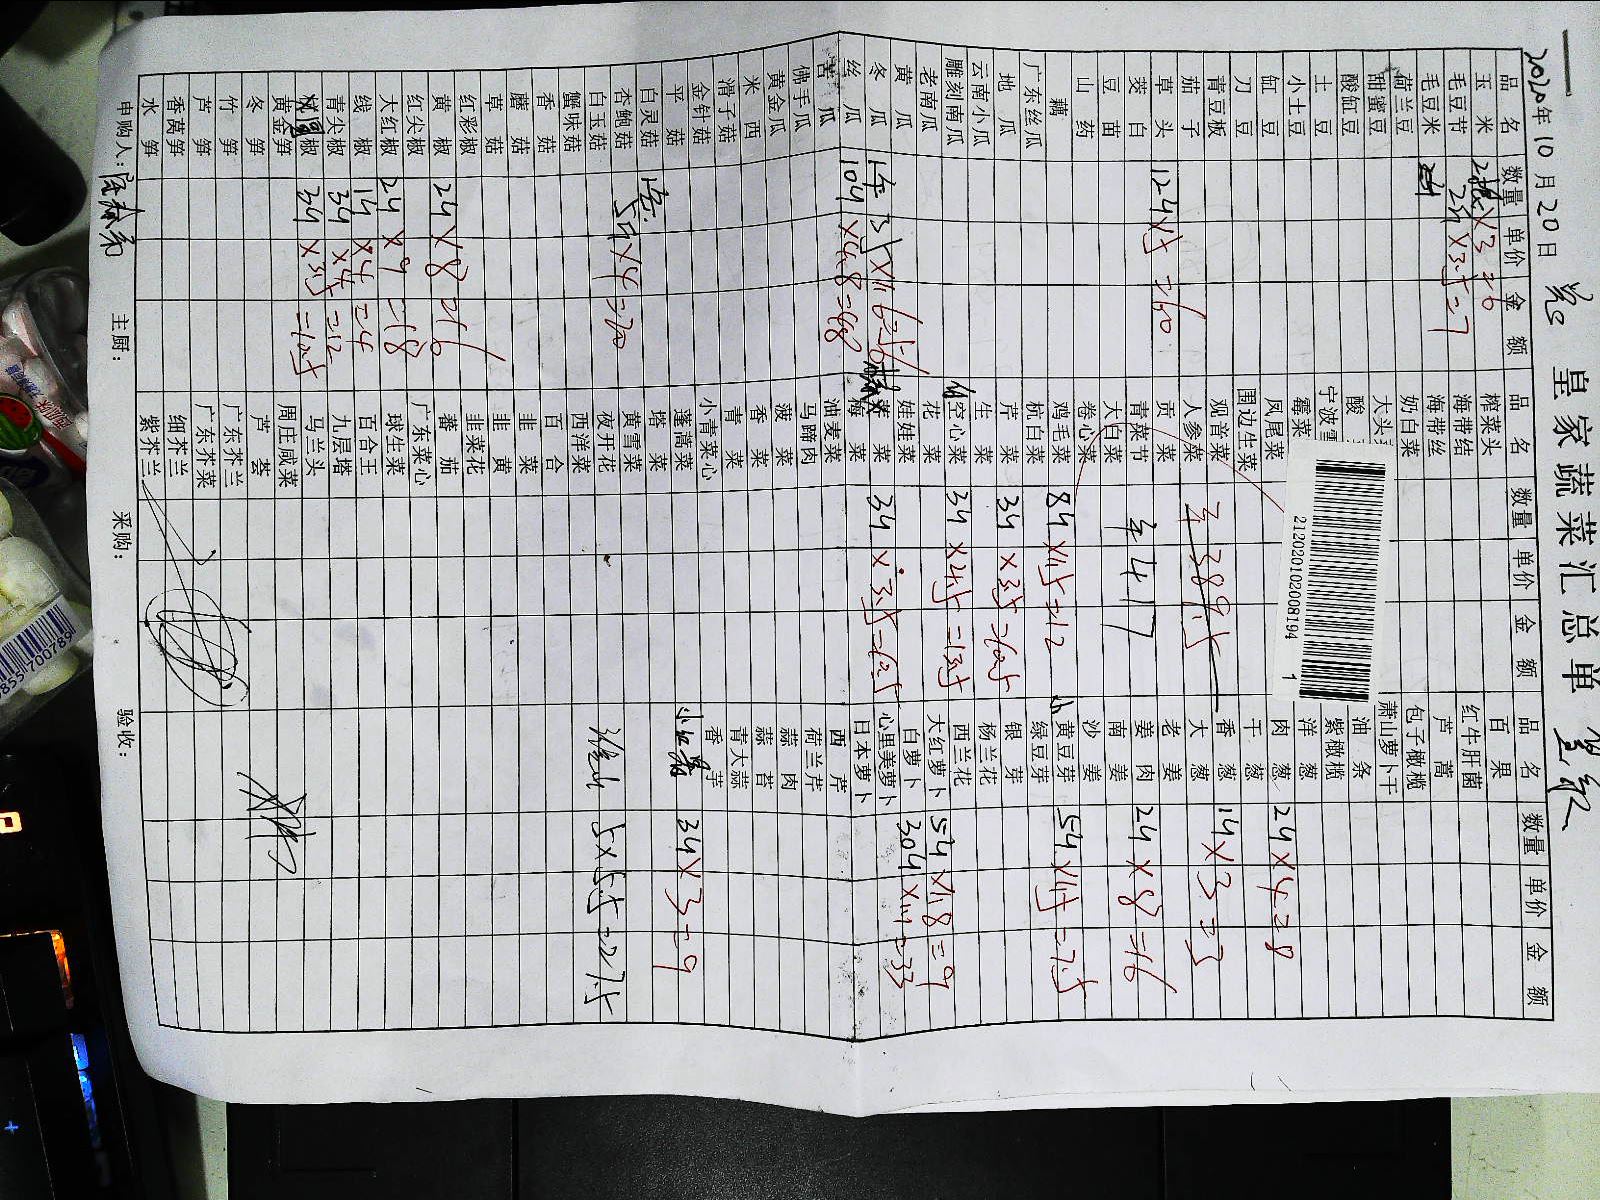 皇家蔬菜汇总单
2020年10月20日
品名 数量 单价 金额 品名 数量 单价 金额 品名 数量 单价 金额
玉米 ×3=6 榨菜头 百果
毛豆节 2斤×3.5=7 海带结 红牛肝菌
毛豆米 海带丝 芦蒿
荷兰豆 奶白菜 包子橄榄
甜蜜豆 萧山萝卜干
酸缸豆 油条
土豆 紫橄榄
小土豆 霉菜 洋葱
缸豆 凤尾菜 肉葱 2斤×4=8
刀豆 围边生菜 干葱
青豆板 观音菜 香葱 1斤×3=3
茄子 人参菜 大葱
草头 12斤×5=60 贡菜 老姜
茭白 青菜节 姜肉 2斤×8=16
豆苗 大白菜 南姜
山药 卷心菜 沙姜
藕 鸡毛菜 8斤×1.5=12 黄豆芽 5斤×1.5=7.5
广东丝瓜 杭白菜 绿豆芽
地瓜 芹菜 3斤×3.5=10.5 银芽
云南小瓜 生菜 杨兰花
雕刻南瓜 空心菜 3斤×4.5=13.5 西兰花
老南瓜 花菜 大红萝卜 5斤×1.8=9
黄瓜 娃娃菜 白萝卜 30斤×1.1=33
冬瓜 菜 3斤×3.5=10.5 心里美萝卜
丝瓜 10斤×4.8=48 梅菜 日本萝卜
苦瓜 油麦菜 西芹
佛手瓜 马蹄肉 荷兰芹
黄金瓜 菠菜 蒜肉
西米 香菜 蒜苔
滑子菇 青菜 青大蒜
金针菇 小青菜心 香芋
平菇 蓬蒿菜 3斤×3=9
白灵菇 塔菜
杏鲍菇 5斤×4=20 黄雪菜
白玉菇 夜开花 5×5.5=27.5
蟹味菇 西洋菜
香菇 百合
蘑菇 韭菜
草菇 韭黄
红彩椒 韭菜花
黄椒 2斤×8=16 蕃茄
红尖椒 广东菜心
大红椒 2斤×9=18 球生菜
线椒 1斤×4=4 百合王
青尖椒 3斤×4=12 九层塔
椒 3斤×3.5=10.5 马兰头
黄金笋 周庄咸菜
冬笋 芦荟
竹笋 广东芥兰
芦笋 广东芥菜
香莴笋 细芥兰
水笋 紫芥兰
417
389.5
申购人： 主厨： 采购： 验收：
2120201020008194 1
855700789